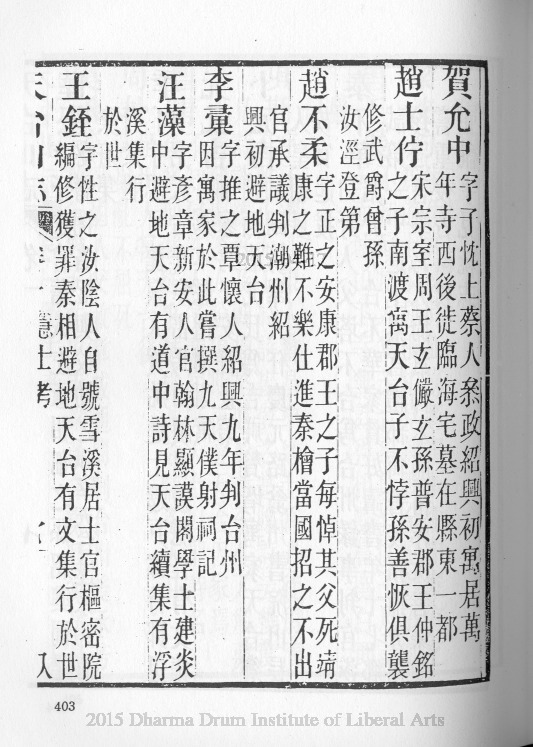 賀允中
字子忱上蔡人叅政紹興初寓居萬
年寺西後徙臨海宅墓在縣東一都
趙士佇
宋宗室周王玄儼玄孫普安郡王仲銘
之子南渡寓天台子不悖孫善恢俱襲
修武爵曾孫
汝涇登第
趙不柔
字正之安康郡王之子每悼其父死靖
康之難不樂仕進秦檜當國招之不出
官承議判潮州紹
興初避地天台
李彚
字推之覃懷人紹興九年判台州
因寓家於此嘗撰九天僕射祠記
汪藻
字彥章新安人官翰林顯謨閣學士建炎
中避地天台有道中詩見天台續集有浮
溪集行
於世
王銍
字性之汝陰人自號雪溪居士官樞密院
編修獲罪秦相避地天台有文集行於世
天台山志 隱士考
403
2015 Dharma Drum Institute of Liberal Arts